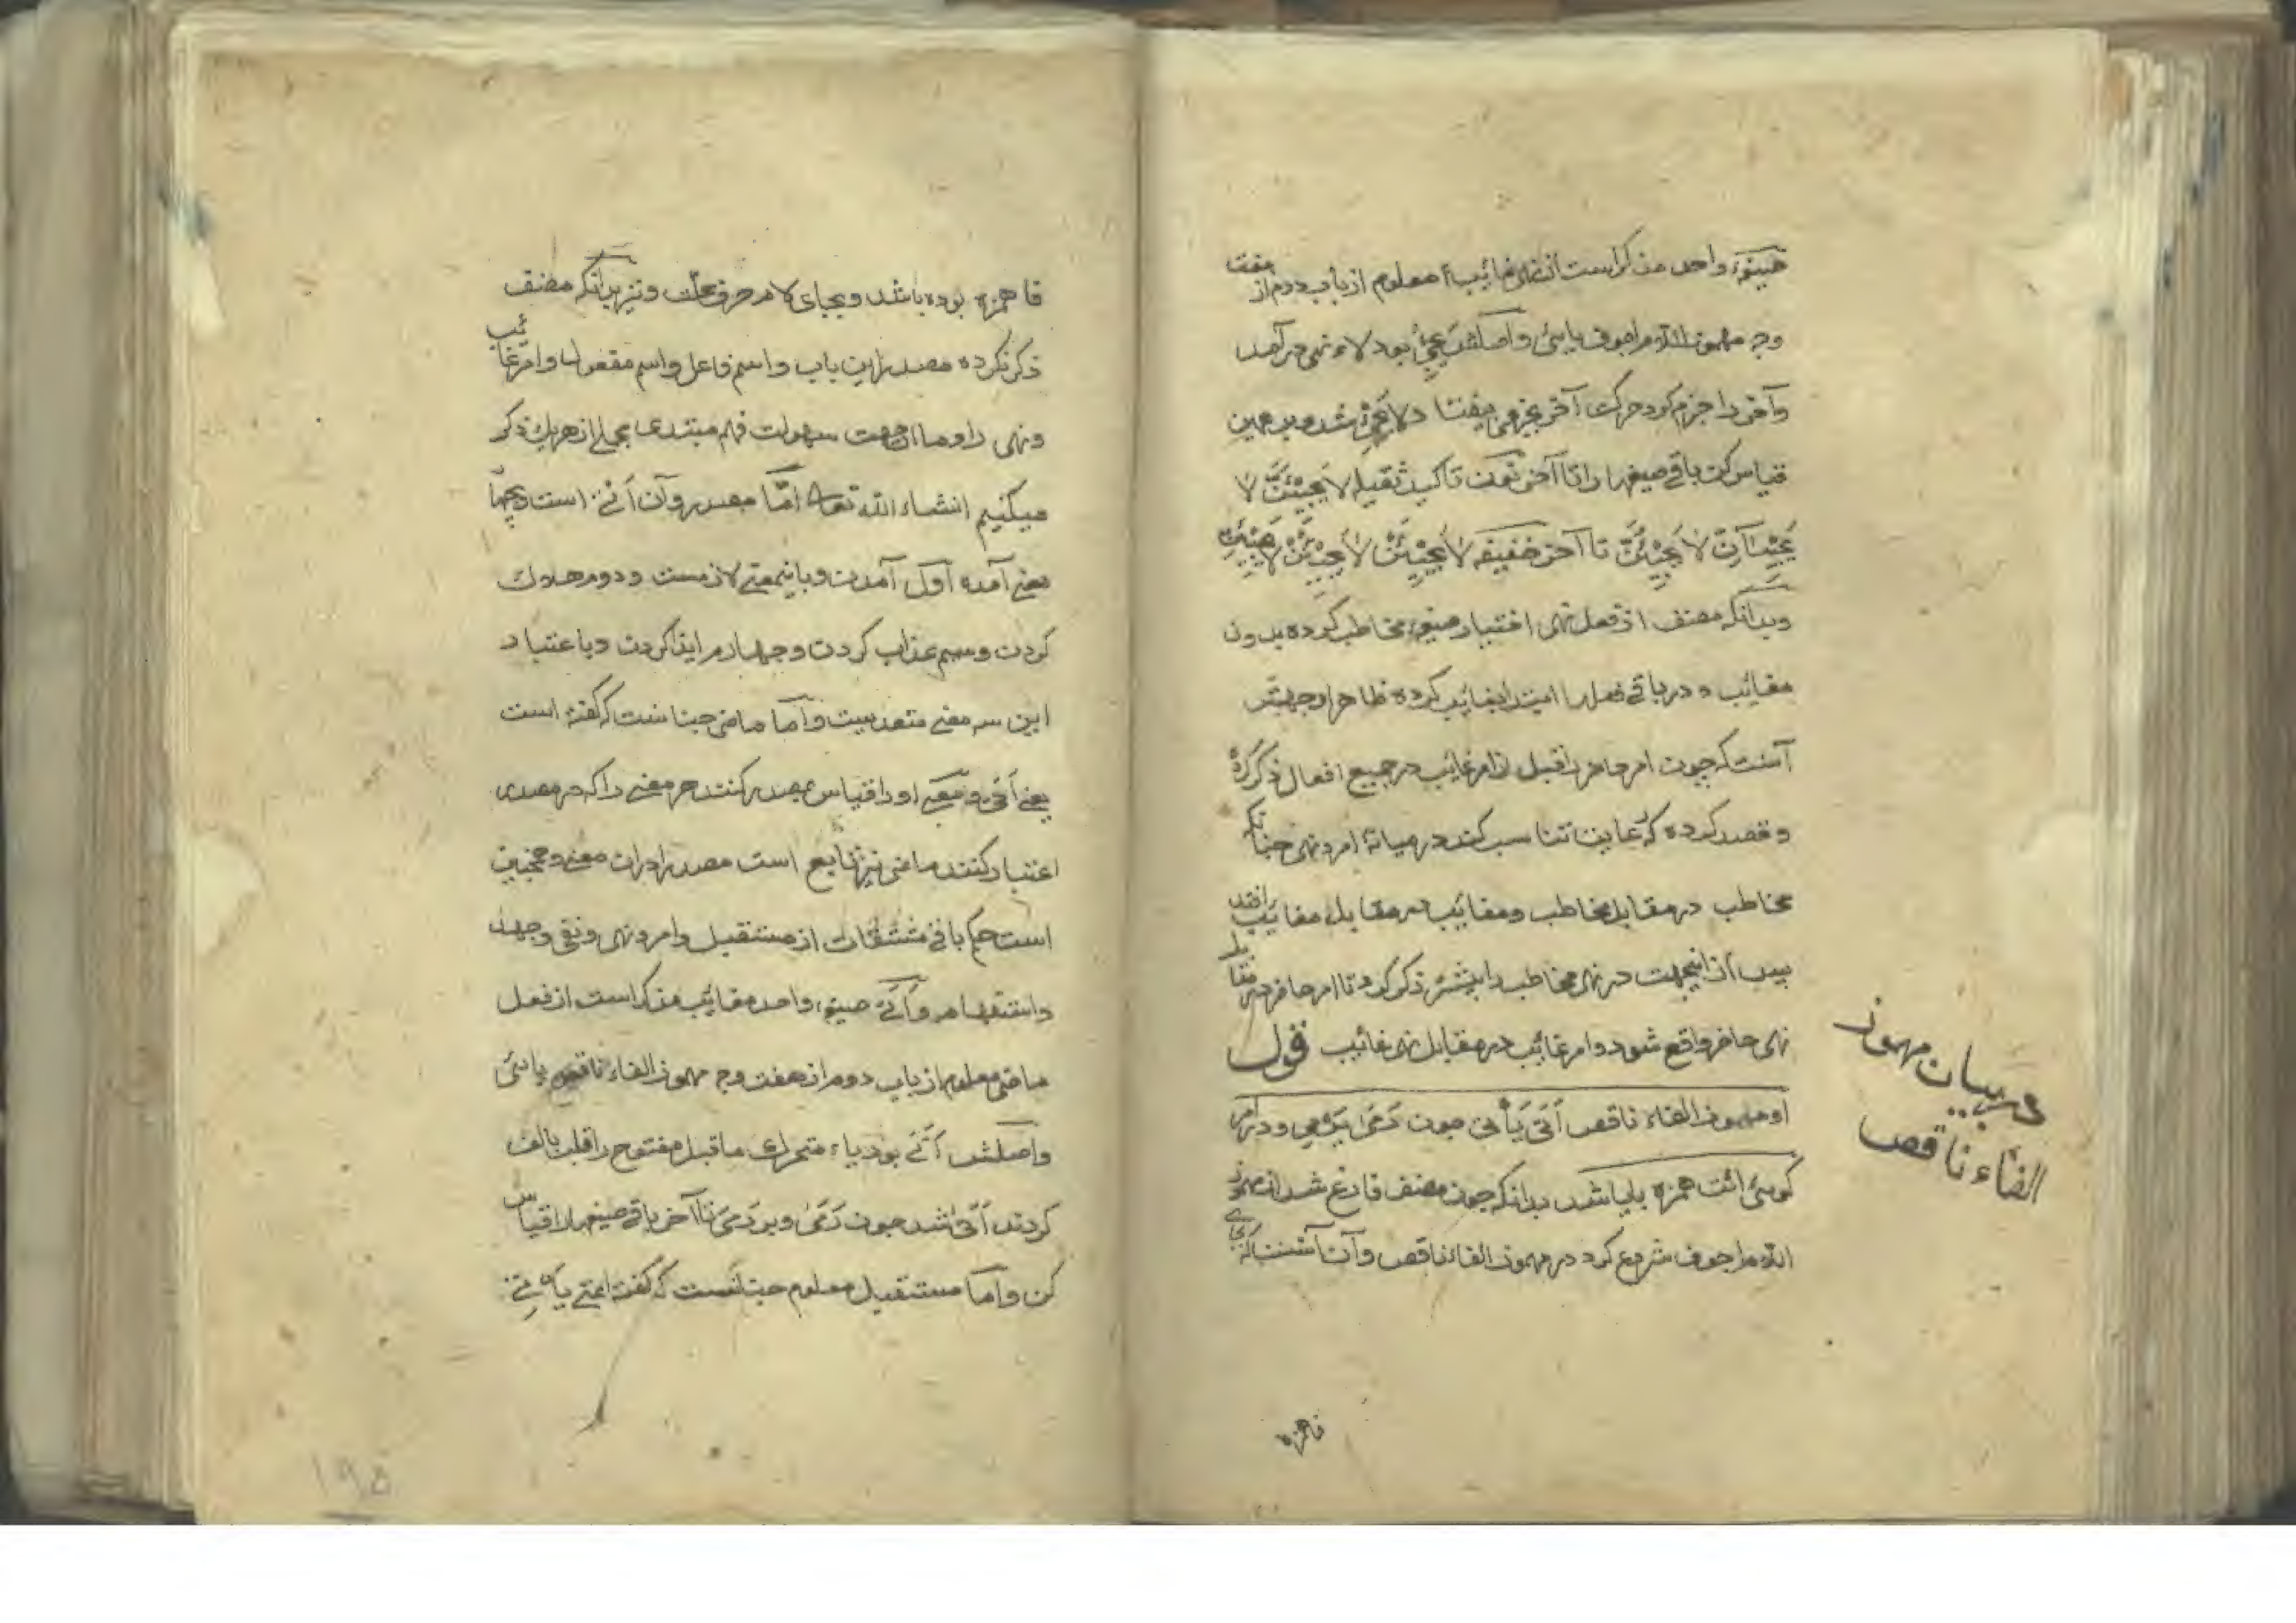 صیغهٔ واحد مذکر است از نهی غائب معلوم از باب دوم از هفت
وجه مهموز اللام اجوف یائی و اصلش یجیئ بود لاء نهی درآمد
و آخر را جزم کرد حرکت آخر بجزمی بیفتاد لا یجئ شد و بر همین
قیاس کن باقی صیغها را تا آخر نون تاکید ثقیله لا یجیئنّ لا
یجیئانّ لا یجیئنّ تا آخر خفیفه لا یجیئن لا یجیئن لا یجیئن
و بدانکه مصنف از فعل نهی اختیار صیغهٔ مخاطب کرده بدون
مغائب و در باقی فعلها ابتدا بغائب کرده ظاهرا وجهش
آنست که چون امر حاضر را قبل از امر غائب در جمیع افعال ذکر کرده
و قصد کرده که رعایت تناسب کند در میانهٔ امر و نهی چنانکه
مخاطب در مقابل مخاطب و مغائب در مقابل مغائب افتد
پس از اینجهت در نهی مخاطب را پیشتر ذکر کرد تا امر حاضر در مقابل
نهی حاضر واقع شود و امر غائب در مقابل نهی غائب قول
او مهموز الفاء ناقص أتی یأتی چون رمی یرمی و در امر
گوئی ائت همزه بیا باشد بدانکه چون مصنف فارغ شد از مهموز
اللام اجوف شروع کرد در مهموز الفاء ناقص و آن آنست که بجای
فا همزه
در بیان مهموز
الفاء ناقص
فا همزه بوده باشد و بجای لام حرف علت و نیز بدانکه مصنف
ذکر نکرده مصدر این باب و اسم فاعل و اسم مفعول و امر غائب
و نهی را و ما از جهت سهولت فهم مبتدی بجملی از هر یک ذکر
میکنیم انشاء الله تعالی امّا مصدر و آن أتی است و بچهار
معنی آمده اول آمدن و باینمعنی لازمست و دوم هلاک
کردن و سیم عذاب کردن و چهارم ایذا کردن و باعتبار
این سه معنی متعدیست و اما ماضی چنانست که گفته است
یعنی أتی و معنی او را قیاس بمصدر کنند هر معنی را که در مصدر
اعتبار کنند ماضی نیز تابع است مصدر را در ان معنی و همچنین
است حکم باقی مشتقات از مستقبل و امر و نهی و نفی و جحد
و استفهام و أتی صیغهٔ واحد مغائب مذکر است از فعل
ماضی معلوم از باب دوم از هفت وجه مهموز الفاء ناقص یائی
و اصلش أتی بود یاء متحرک ماقبل مفتوح را قلب بالف
کردند أتی شد چون رمی و بر رمی تا آخر باقی صیغها را قیاس
کن و اما مستقبل معلوم چنانست که گفته یعنی یأتی
۱۹۵